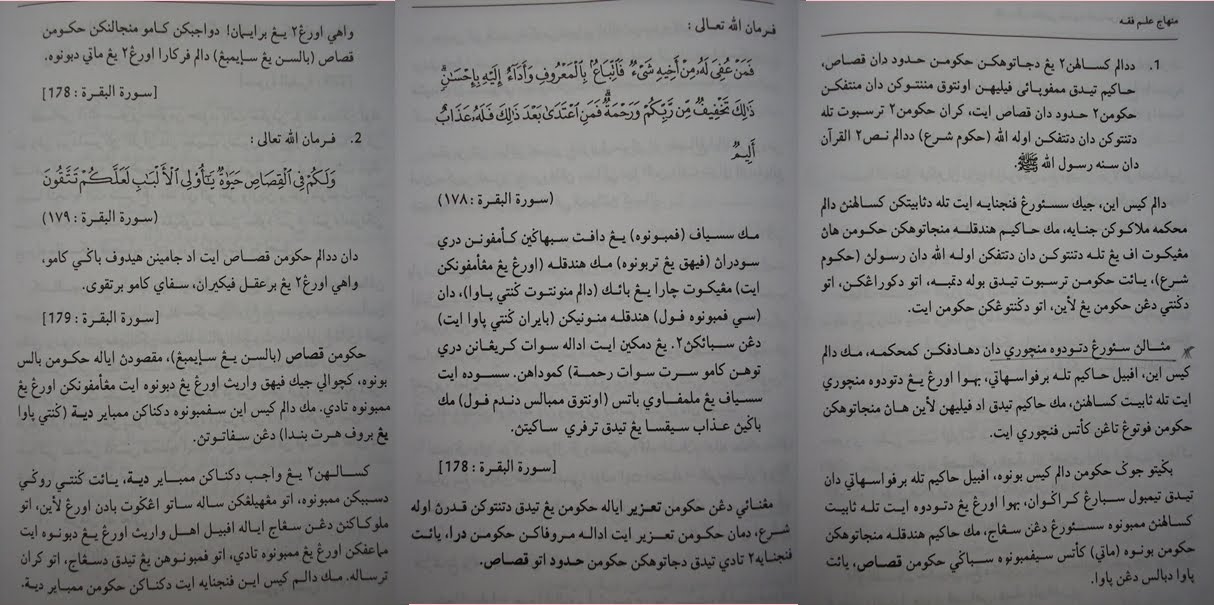 منهاج علم فقه
1. ددالم كسالهن٢ يڠ دجاتوهكن حكومن حدود دان قصاص،
حاكيم تيدق ممفوڽائي فيليهن اونتوق مننتوكن دان منتفكن
حكومن٢ حدود دان قصاص ايت، كران حكومن٢ ترسبوت تله
دتنتوكن دان دتتفكن اوله الله (حكوم شرع) ددالم نص٢ القرآن
دان سنه رسول الله ﷺ
دالم كيس اين، جيك سسئورڠ فنجنايه ايت تله دثابيتكن كسالهنڽ دالم
محكمه ملاكوكن جنايه، مك حاكيم هندقله منجاتوهكن حكومن هاڽ
مڠيكوت اف يڠ تله دتنتوكن دان دتتفكن اوله الله دان رسولڽ (حكوم
شرع)، يائت حكومن ترسبوت تيدق بوله دڤبه، اتو دكورڠكن، اتو
دݢنتي دڠن حكومن يڠ لأين، اتو دݢنتوڠكن حكومن ايت.
مثالڽ سئورڠ دتودوه منچوري دان دهادفكن كمحكمه، مك دالم
كيس اين، افبيل حاكيم تله برفواسهاتي، بهوا اورڠ يڠ دتودوه منچوري
ايت تله ثابيت كسالهنڽ، مك حاكيم تيدق اد فيليهن لأين هاڽ منجاتوهكن
حكومن فوتوڠ تاڠن كأتس فنچوري ايت.
بݢيتو جوݢ حكومن دالم كيس بونوه، افبيل حاكيم تله برفواسهاتي دان
تيدق تيمبول سبارڠ كراݢوان، بهوا اورڠ يڠ دتودوه ايت تله ثابيت
كسالهنڽ ممبونوه سسئورڠ دڠن سڠاج، مك حاكيم هندقله منجاتوهكن
حكومن بونوه (ماتي) كأتس سيفمبونوه سباݢي حكومن قصاص، يائت
ڽاوا دبالس دڠن ڽاوا.
فرمان الله تعالى :
فَمَنْ عُفِىَ لَهُۥ مِنْ أَخِيهِ شَىْءٌ فَٱتِّبَاعٌۢ بِٱلْمَعْرُوفِ وَأَدَآءٌ إِلَيْهِ بِإِحْسَٰنٍ
ذَٰلِكَ تَخْفِيفٌ مِّن رَّبِّكُمْ وَرَحْمَةٌ فَمَنِ ٱعْتَدَىٰ بَعْدَ ذَٰلِكَ فَلَهُۥ عَذَابٌ
أَلِيمٌ
(سورة البقرة : ١٧٨)
مك سسياف (فمبونوه) يڠ دافت سبهاݢين كأمفونن دري
سودراڽ (فيهق يڠ تربونوه) مك هندقله (اورڠ يڠ مڠأمفونكن
ايت) مڠيكوت چارا يڠ بائك (دالم منونتوت ݢنتي ڽاوا)، دان
(سي فمبونوه فول) هندقله منونيكن (بايران ݢنتي ڽاوا ايت)
دڠن سبائكڽ٢. يڠ دمكين ايت اداله سوات كريڠانن دري
توهن كامو سرت سوات رحمة) كموداهن. سسوده ايت
سسياف يڠ ملمفاوي باتس (اونتوق ممبالس دندم فول) مك
باݢين عذاب سيقسا يڠ تيدق ترفري ساكيتڽ.
[سورة البقرة : 178]
مڠنائي دڠن حكومن تعزير اياله حكومن يڠ تيدق دتنتوكن قدرڽ اوله
شرع، دمان حكومن تعزير ايت اداله مروفاكن حكومن درا، يائت
فنجنايه٢ تادي تيدق دجاتوهكن حكومن حدود اتو قصاص.
واهي اورڠ٢ يڠ برايمان! دواجبكن كامو منجالنكن حكومن
قصاص (بالسن يڠ سإيمبڠ) دالم فركارا اورڠ٢ يڠ ماتي دبونوه.
[سورة البقرة : 178]
2. فرمان الله تعالى :
وَلَكُمْ فِى ٱلْقِصَاصِ حَيَوٰةٌ يَٰٓأُو۟لِى ٱلْأَلْبَٰبِ لَعَلَّكُمْ تَتَّقُونَ
(سورة البقرة : ١٧٩)
دان ددالم حكومن قصاص ايت اد جامينن هيدوف باݢي كامو،
واهي اورڠ٢ يڠ برعقل فيكيران، سفاي كامو برتقوى.
[سورة البقرة : 179]
حكومن قصاص (بالسن يڠ سإيمبڠ)، مقصودڽ اياله حكومن بالس
بونوه، كچوالي جيك فيهق واريث اورڠ يڠ دبونوه ايت مڠأمفونكن اورڠ يڠ
ممبونوه تادي. مك دالم كيس اين سفمبونوه دكناكن ممباير دية (ݢنتي ڽاوا
يڠ بروف هرت بندا) دڠن سفاتوتڽ.
كسالهن٢ يڠ واجب دكناكن ممباير دية، يائت ݢنتي روݢي
دسببكن ممبونوه، اتو مڠهيلڠكن ساله ساتو اڠݢوت بادن اورڠ لأين، اتو
ملوكاكنڽ دڠن سڠاج اياله افبيل اهل واريث اورڠ يڠ دبونوه ايت
معافكن اورڠ يڠ ممبونوه تادي، اتو فمبونوهن يڠ تيدق دسڠاج، اتو كران
ترساله. مك دالم كيس اين فنجنايه ايت دكناكن حكومن ممباير دية.